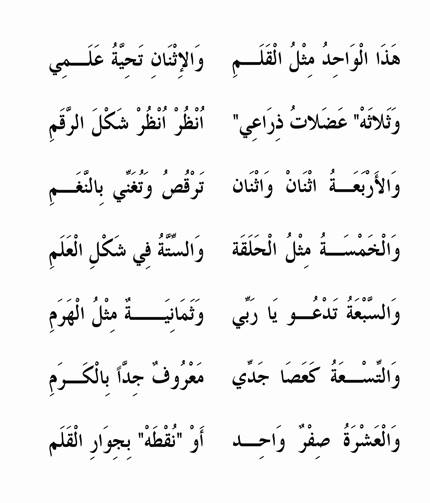 هَذَا الْوَاحِدُ مِثْلُ الْقَلَـــمِ وَالإِثْنَانِ تَحِيَّةُ عَلَـــمِي
وَثَلاثَهْ" عَضَلاتُ ذِرَاعِي" اُنْظُرْ اُنْظُرْ شَكْلَ الرَّقَمِ
وَالأَرْبَعَـــةُ اثْنَانْ وَاثْنَان تَرْقُصُ وَتُغَنِّي بِالنَّغَـــمِ
وَالْخَمْسَـــةُ مِثْلُ الْحَلَقَة وَالسِّتَّةُ فِي شَكْلِ الْعَلَمِ
وَالسَّبْعَةُ تَدْعُـــو يَا رَبِّي وَثَمَانِيَـــــةٌ مِثْلُ الْهَرَمِ
وَالتِّسْـــعَةُ كَعَصَا جَدِّي مَعْرُوفٌ جِدَّاً بِالْكَـــرَمِ
وَالْعَشْرَةُ صِفْرٌ وَاحِـــد أَوْ "نُقْطَهْ" بِجِوَارِ الْقَلَم